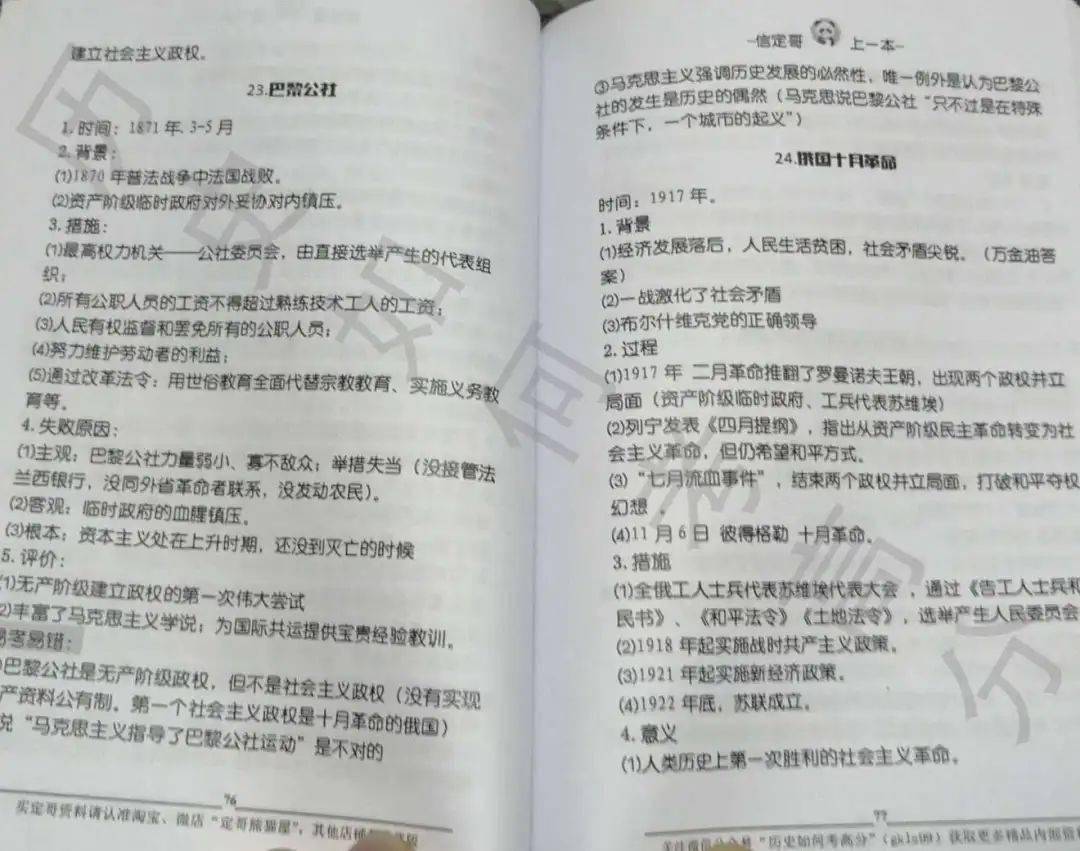 建立社会主义政权。
23.巴黎公社
1.时间：1871年.3-5月
2.背景：
(1)1870年普法战争中法国战败。
(2)资产阶级临时政府对外妥协对内镇压。
3.措施：
(1)最高权力机关——公社委员会，由直接选举产生的代表组
织；
(2)所有公职人员的工资不得超过熟练技术工人的工资；
(3)人民有权监督和罢免所有的公职人员；
(4)努力维护劳动者的利益；
(5)通过改革法令：用世俗教育全面代替宗教教育、实施义务教
育等。
4.失败原因：
(1)主观：巴黎公社力量弱小、寡不敌众；举措失当（没接管法
兰西银行，没同外省革命者联系，没发动农民）。
(2)客观：临时政府的血腥镇压。
(3)根本：资本主义处在上升时期，还没到灭亡的时候
5.评价：
1)无产阶级建立政权的第一次伟大尝试
2)丰富了马克思主义学说；为国际共运提供宝贵经验教训。
易考易错：
巴黎公社是无产阶级政权，但不是社会主义政权（没有实现
产资料公有制。第一个社会主义政权是十月革命的俄国）
说“马克思主义指导了巴黎公社运动”是不对的
76
买定哥资料请认准淘宝、微店“定哥熊猫屋”，其他店铺
版
-信定哥 上一本-
③马克思主义强调历史发展的必然性，唯一例外是认为巴黎公
社的发生是历史的偶然（马克思说巴黎公社“只不过是在特殊
条件下，一个城市的起义”）
24.俄国十月革命
时间：1917年。
1.背景
(1)经济发展落后，人民生活贫困，社会矛盾尖锐。（万金油答
案）
(2)一战激化了社会矛盾
(3)布尔什维克党的正确领导
2.过程
(1)1917年 二月革命推翻了罗曼诺夫王朝，出现两个政权并立
局面（资产阶级临时政府、工兵代表苏维埃）
(2)列宁发表《四月提纲》，指出从资产阶级民主革命转变为社
会主义革命，但仍希望和平方式。
(3)“七月流血事件”，结束两个政权并立局面，打破和平夺权
幻想。
(4)11月6日 彼得格勒 十月革命。
3.措施
(1)全俄工人士兵代表苏维埃代表大会，通过《告工人士兵和
民书》、《和平法令》《土地法令》，选举产生人民委员会
(2)1918年起实施战时共产主义政策。
(3)1921年起实施新经济政策。
(4)1922年底，苏联成立。
4.意义
(1)人类历史上第一次胜利的社会主义革命。
77
关注微信公众号“历史如何考高分”(gkls99)获取更多精品内部资料
历史如何考高分